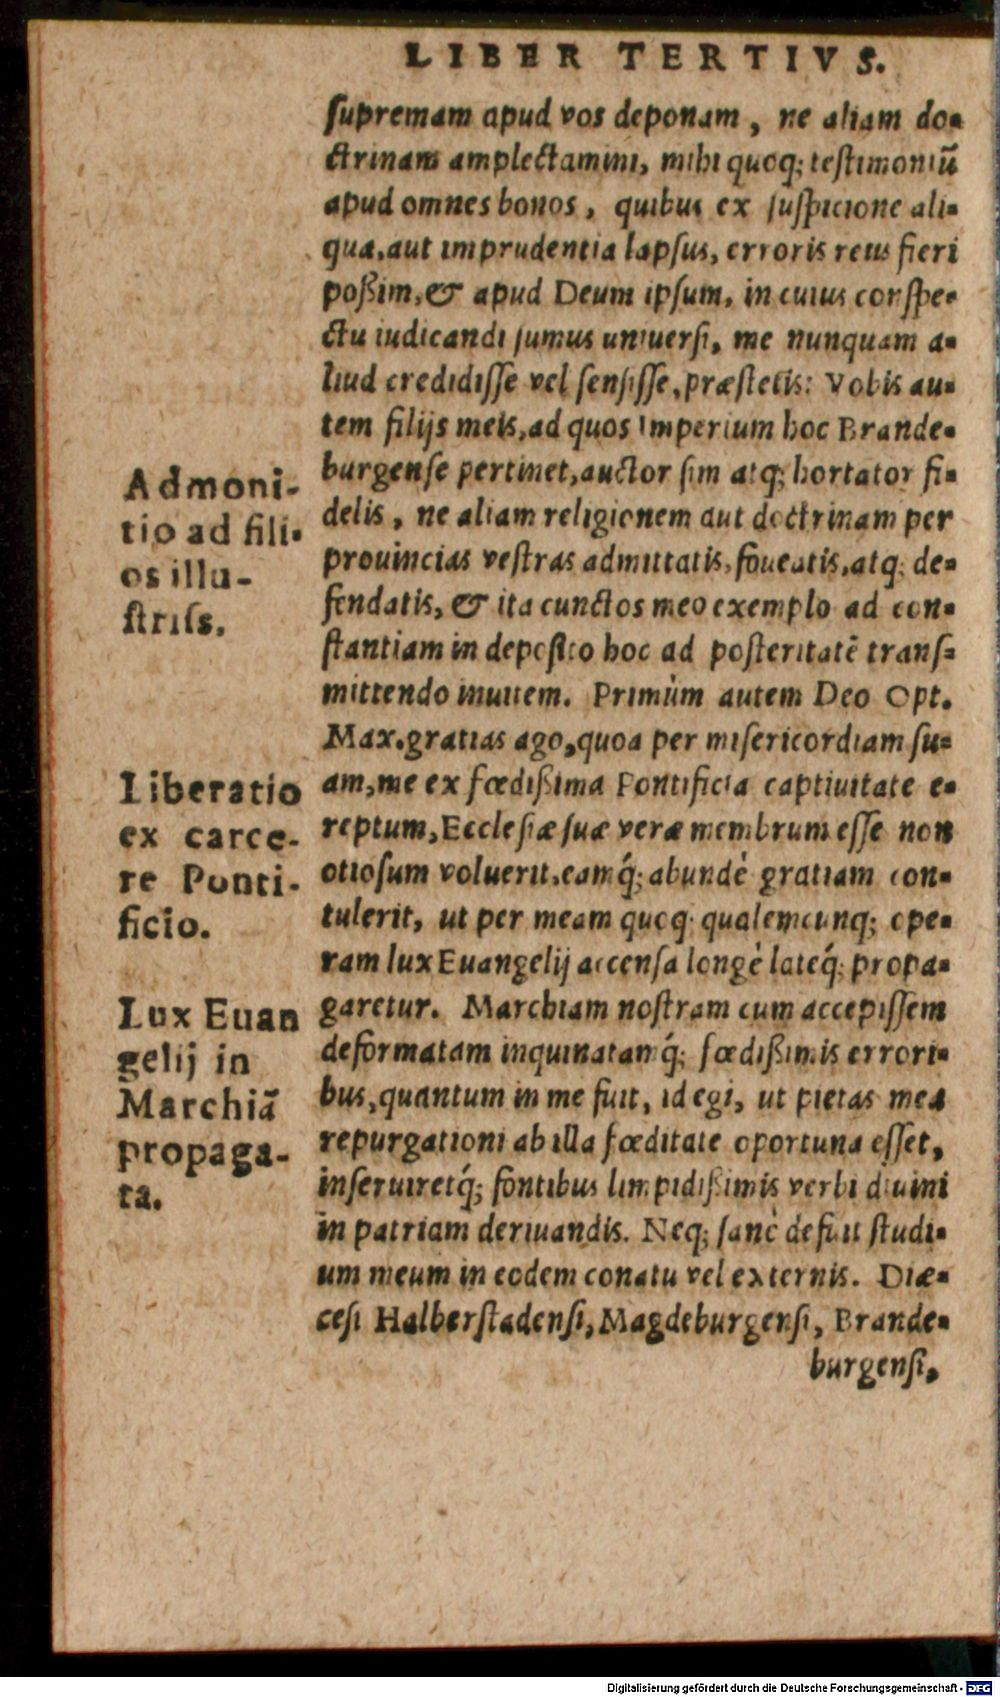 LIBER TERTIVS.
ſupremam apud vos deponam, ne aliam do-
ctrinam amplectamini, mihi quoq; teſtimoniũ
apud omnes bonos, quibus ex ſuſpicione ali-
qua, aut imprudentia lapſus, erroris reus fieri
poßim, & apud Deum ipſum, in cuius conſpe-
ctu iudicandi ſumus uniuerſi, me nunquam a-
liud credidiſſe vel ſenſiſſe, præſtetis: Vobis au-
tem filijs meis, ad quos Imperium hoc Brande-
burgenſe pertinet, auctor ſim atq; hortator fi-
delis, ne aliam religionem aut doctrinam per
prouincias veſtras admittatis, foueatis, atq; de-
fendatis, & ita cunctos meo exemplo ad con-
ſtantiam in depoſito hoc ad poſteritatẽ tranſ-
mittendo inuitem. Primùm autem Deo Opt.
Max. gratias ago, quod per miſericordiam ſu-
am, me ex fœdißima Pontificia captiuitate e-
reptum, Eccleſiæ ſuæ veræ membrum eſſe non
otioſum voluerit, eamq́; abundè gratiam con-
tulerit, ut per meam quoq; qualemcunq; ope-
ram lux Euangelij accenſa longè lateq́; propa-
garetur. Marchiam noſtram cum accepiſſem
deformatam inquinatamq́; fœdißimis errori-
bus, quantum in me fuit, id egi, ut pietas mea
repurgationi ab illa fœditate oportuna eſſet,
inſeruiretq́; fontibus limpidißimis verbi diuini
in patriam deriuandis. Neq; ſanè defuit ſtudi-
um meum in eodem conatu vel externis. Diæ-
ceſi Halberſtadenſi, Magdeburgenſi, Brande-
burgenſi,
Admoni-
tio ad fili-
os illu-
ſtriſs.
Liberatio
ex carce-
re Ponti-
ficio.
Lux Euan
gelij in
Marchiã
propaga-
ta.
Digitalisierung gefördert durch die Deutsche Forschungsgemeinschaft - DFG